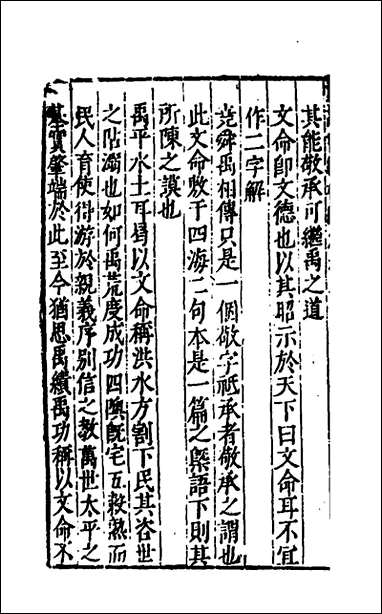 其能敬承可繼禹之道
文命卽文德也以其昭示於天下曰文命耳不宜
作二字解
堯舜禹相傳只是一個敬字祗承者敬承之謂也
此文命敷于四海二句本是一篇之槩語下則其
所陳之謨也
禹平水土耳曷以文命稱洪水方割下民其咨世
之阽溺也如何禹荒度成功四隩旣宅五穀熟而
民人育使得游於親義序別信之教萬世太平之
基實肇端於此至今猶思禹績禹功稱以文命不